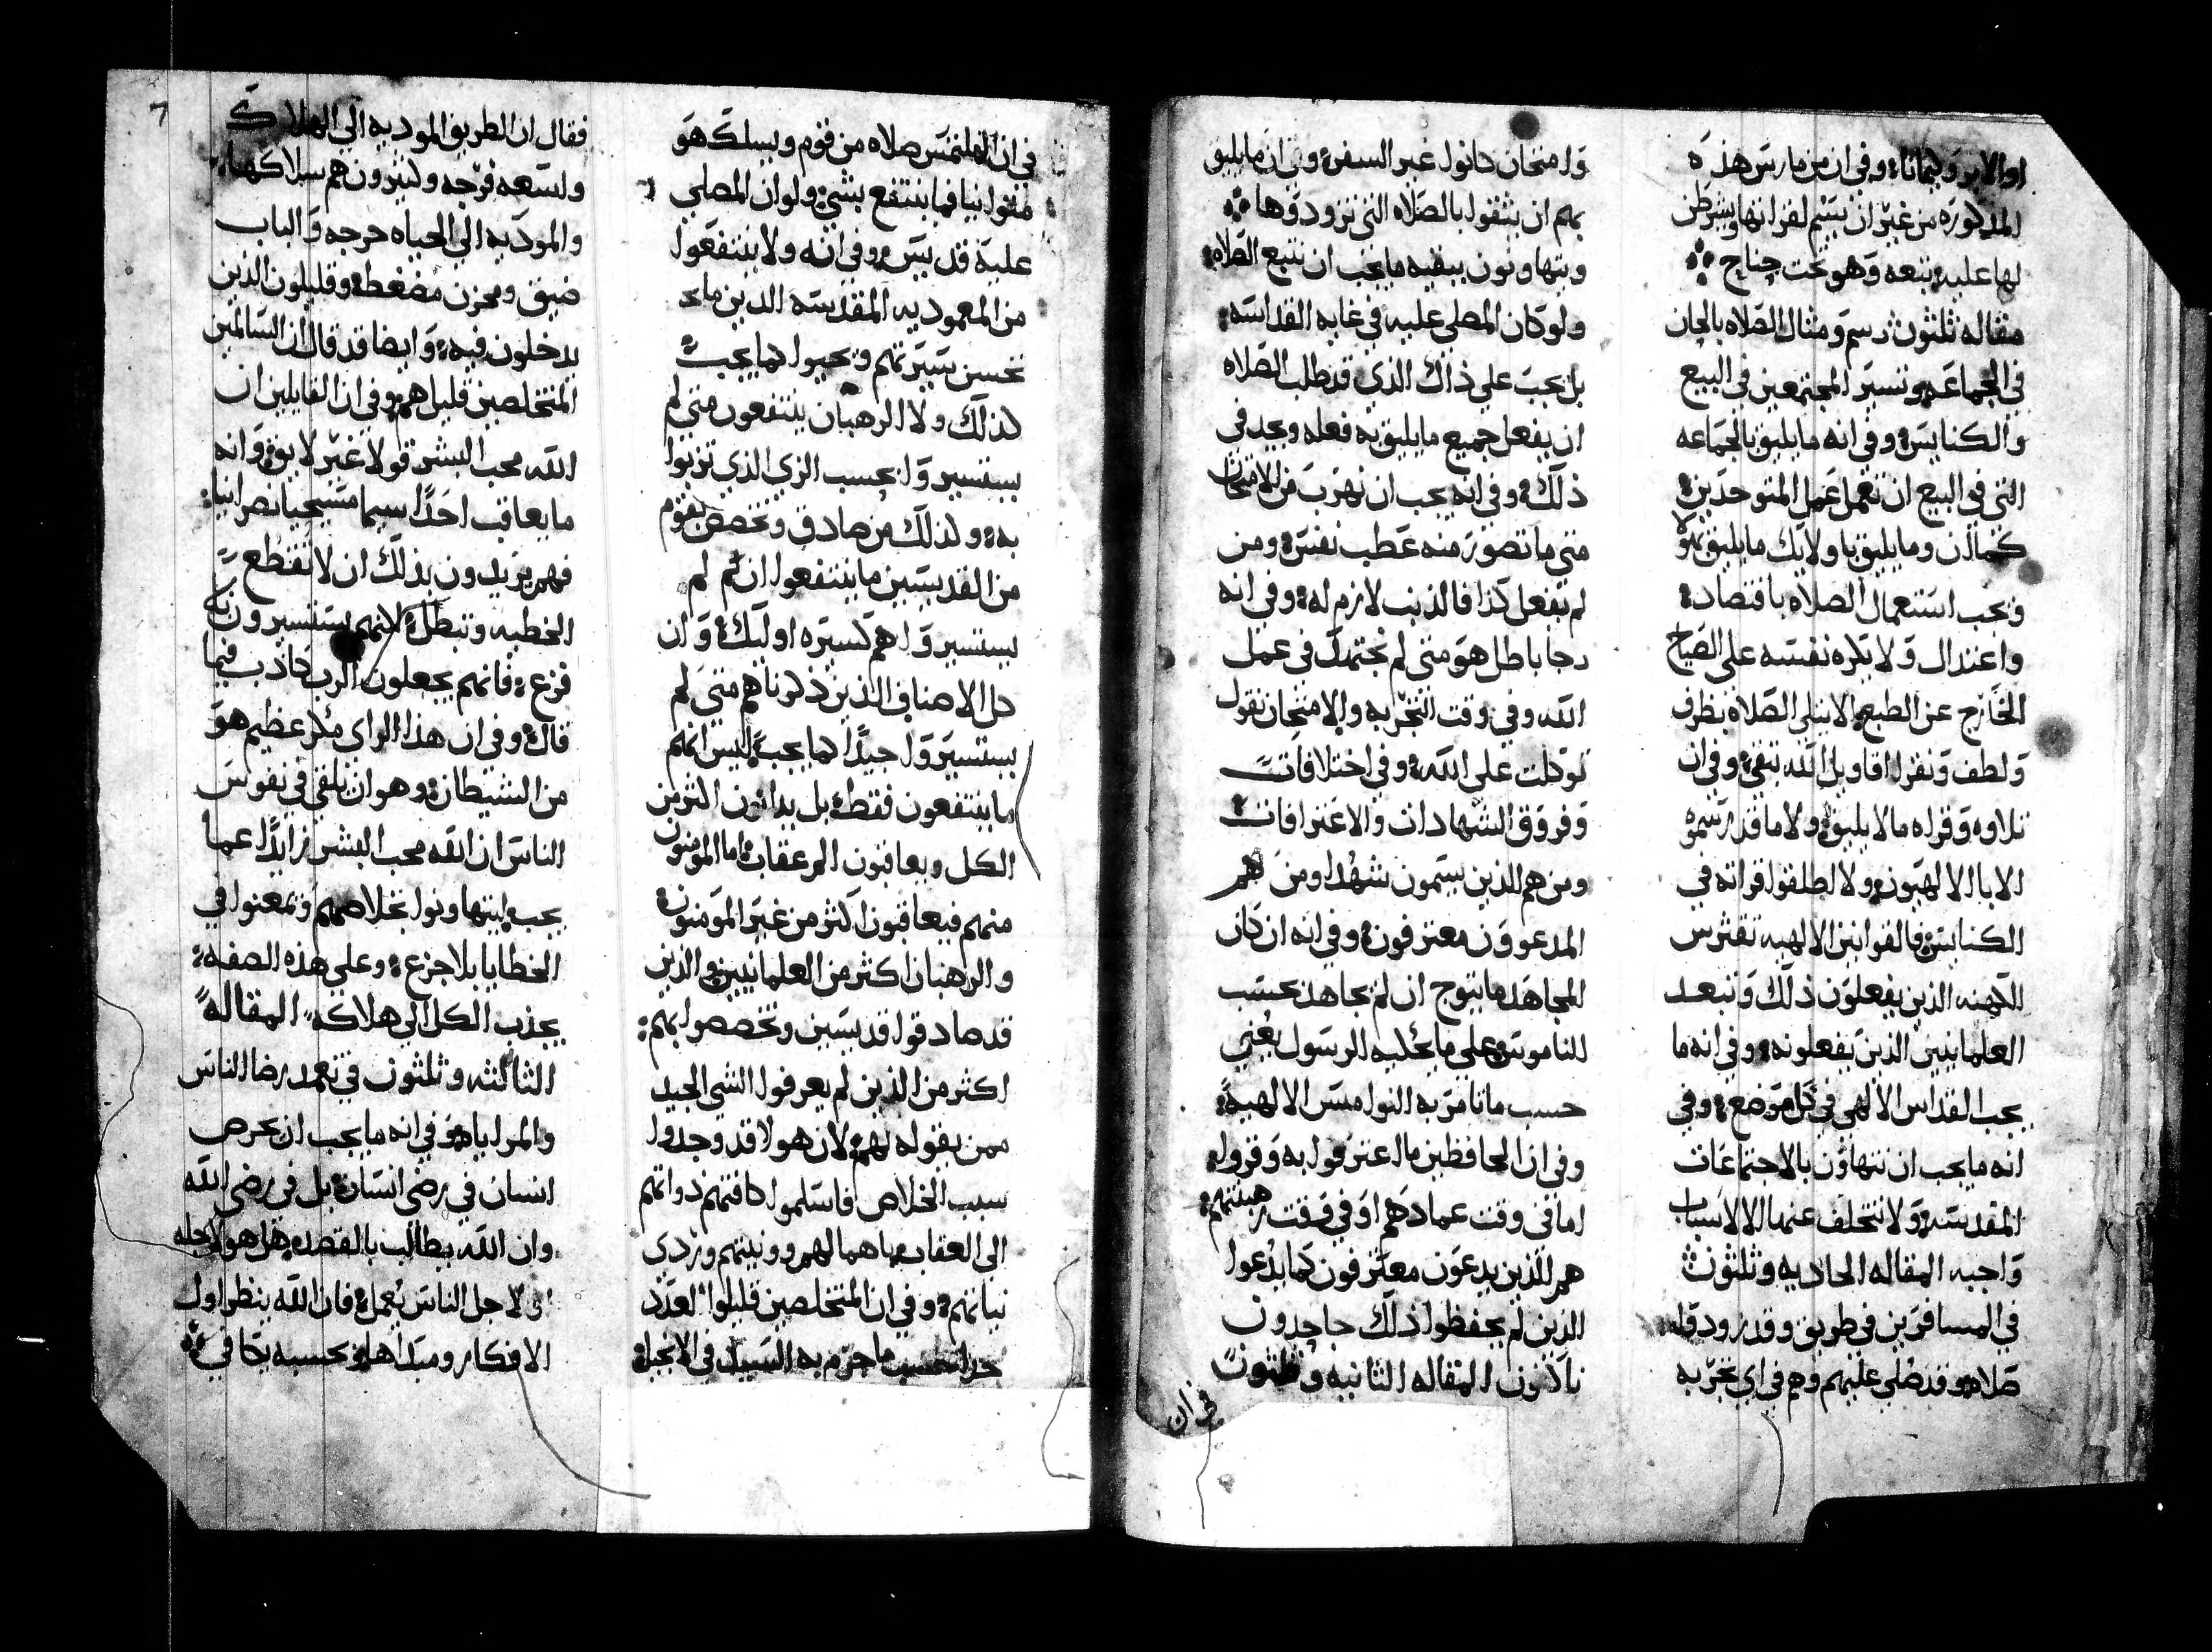 او الابر وليمانا؛ وفي ان من مارس هذه
المذكوره من غير ان يتيم لقرانها وبشرطن
لها عليه بتبعه وهو تحت جناح
مقاله ثلثون رسم ومثال الصلاه بالحان
في الجماعه وتسير المجتمعين في البيع
والكنايس؛ وفي انه ما يليق بالجماعه
التي في البيع ان تعمل عمل المتوحدين؛
كما ان وما يليق باولايك ما يليق بهولا
ويجب استعمال الصلاه باقتصاد؛
واعتدال ولا يكره نفسه علي الصياح
الخارج عن الطبع الا يتلي الصلاه بظرف
ولطف ونقرا اقاويل الله بتقي؛ وفي ان
تلاوه وقراه ما لا يليق؛ ولا ما قد رسموه
الابا الالهيون؛ ولا اطلقوا قراته في
الكنايس؛ فالقوانين الالهيه تفترس
الكهنه الذين يفعلون ذلك وتبعد
العلمانيين الذين يفعلونه؛ وفي انه ما
يجب القداس الالهي في كل موضع؛ وفي
انه ما يجب ان نتهاون بالاجتماعات
المقدسه ولا نتخلف عنها الا لاسباب
واجبه المقاله الحاديه وثلثون
في المسافرين في طريق وقد زود قل
صلاه وقد صلي عليهم وهم في اي تجربه
وامتحان كانوا غير السفر؛ وفي ان ما يليق
بهم ان يثقوا بالصلاه التي تزودوها
ويتهاونون ببقيه ما يجب ان نتبع الصلاه؛
ولو كان المصلي عليه في غايه القداسه؛
بل يجب علي ذاك الذي قد طلب الصلاه
ان يفعل جميع ما يليق به فعله ويجد في
ذلك؛ وفي انه يجب ان نهرب من الامتحان
متي ما تصور منه عطب نفس؛ ومن
لم يفعل كذا فالذنب لازم له؛ وفي انه
رجا باطل هو متي لم نجتهد في عمل
الله وفي وقت التجربه والامتحان نقول
توكلت علي الله؛ وفي اختلافات
وفروق الشهادات والاعترافات
ومن هم الذين يسمون شهدا ومن هم
المدعوون معترفون؛ وفي انه ان كان
المجاهد ما يتوج ان لم يجاهد بحسب
الناموس وعلي ما يحكيه الرسول يعني
حسب ما تامر به النواميس الالهيه؛
وفي ان الحافظين ما اعترفوا به وقروا؛
اما في وقت عمادهم او في وقت رهبنتهم؛
هم الذين يدعون معترفون كما يدعوا
الذين لم يحفظوا ذلك جاحدون
ناكثون المقاله الثانيه وثلثون
في ان
في ان الملتمس صلاه من قوم ويسلك هو
متوانيا فما ينتفع بشي؛ ولو ان المصلي
عليه قديس؛ وفي انه ولا ينتفعوا
من المعموديه المقدسه الذين ما
تحسن سيرتهم ويحيوا كما يجب؛
كذلك ولا الرهبان ينتفعون متي لم
يستسيروا بحسب الزي الذي تزيوا
به؛ وكذلك من صادق وتخصص بقوم
من القديسين ما ينتفعوا ان هم لم
يستسيروا هم كسيره اوليك؛ وان
كل الاصناف الذين ذكرناهم متي لم
يستسيروا جيدا كما يجب؛ ليس انهم
ما ينتفعون فقط؛ بل يدانون اكثر من
الكل ويعاقبون المر عقاب؛ اما المؤمنون
منهم فيعاقبون اكثر من غير المؤمنون
والرهبان اكثر من العلمانيين والذين
قد صادقوا قديسين وتخصصوا بهم؛
اكثر من الذين لم يعرفوا الشي الجيد
ممن يقوله لهم؛ لان هولا قد وجدوا
سبب الخلاص فاسلموا كافتهم ذواتهم
الي العقاب باهمالهم وونيتهم وردي
نياتهم؛ وفي ان المتخلصين قليلوا العدد
جدا بحسب ما جزم به السيد في الانجيل؛
فقال ان الطريق الموديه الي الهلاك
واسعه فرجه وكثيرون هم سلاكها؛
والموديه الي الحياه حرجه والباب
ضيق ومحزن مضغط؛ وقليلون الذين
يدخلون فيه؛ وايضا قد قال ان السالمين
المتخلصين قليل هم؛ وفي ان القايلين ان
الله محب البشر قولا غير لايق؛ وانه
ما يعاقب احدا سيما مسيحيا نصرانيا؛
فهم يريدون بذلك ان لا تقطع
الخطيه وتبطل؛ لانهم يستسيرون بلا
فزع؛ فانهم يجعلون الرب كاذب فيما
قال؛ وفي ان هذا الراي مكر عظيم هو
من الشيطان؛ وهو ان يلقي في نفوس
الناس ان الله محب البشر زايدا عما
يجب ليتهاونوا بخلاصهم ويمعنوا في
الخطايا بلا جزع؛ وعلي هذه الصفه؛
يجذب الكل الي هلاكه المقاله
الثالثه وثلثون في تعمد رضا الناس
والمراياه؛ وفي انه ما يجب ان يحرص
انسان في رضي انسان؛ بل في رضي الله
وان الله يطالب بالقصد؛ هل هو لاجله
او لاجل الناس يعمل؛ فان الله ينظر اول
الافكار ومبداها؛ وبحسبه يكافي